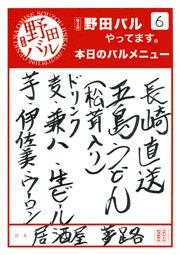 野田バル
第2回
野田バル
やってます。
6
本日のバルメニュー
長崎直送
五島うどん
(松茸入り)
ドリンク
麦・兼八・生ビール
芋・伊佐美・ウーロン
店名
居酒屋 夢路